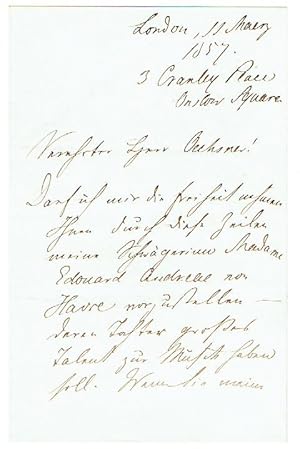 London, 11 Maerz
1857.
3 Cranley Place
Onslow Square.
Verehrter Herr Oechsner!
Darf ich mir die Freiheit nehmen
Ihnen durch diese Zeilen
meine Schwägerinn Madame
Edouard Andreae von
Havre vorzustellen —
deren Tochter großes
Talent zur Musik haben
soll. Wenn Sie meine